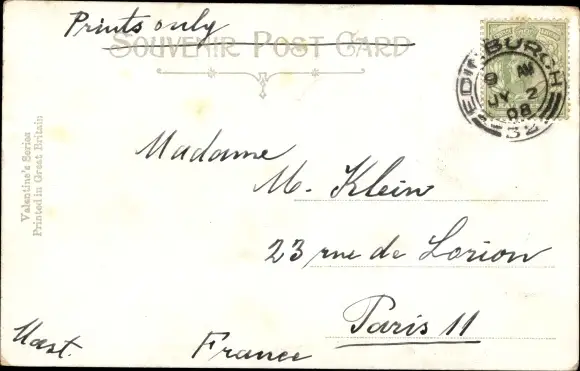 Prints only
SOUVENIR POST CARD
EDINBURGH
9 AM
JY 2
08
32
Valentine's Series
Printed in Great Britain
Madame
M. Klein
23 rue de Lorion
Paris 11
France